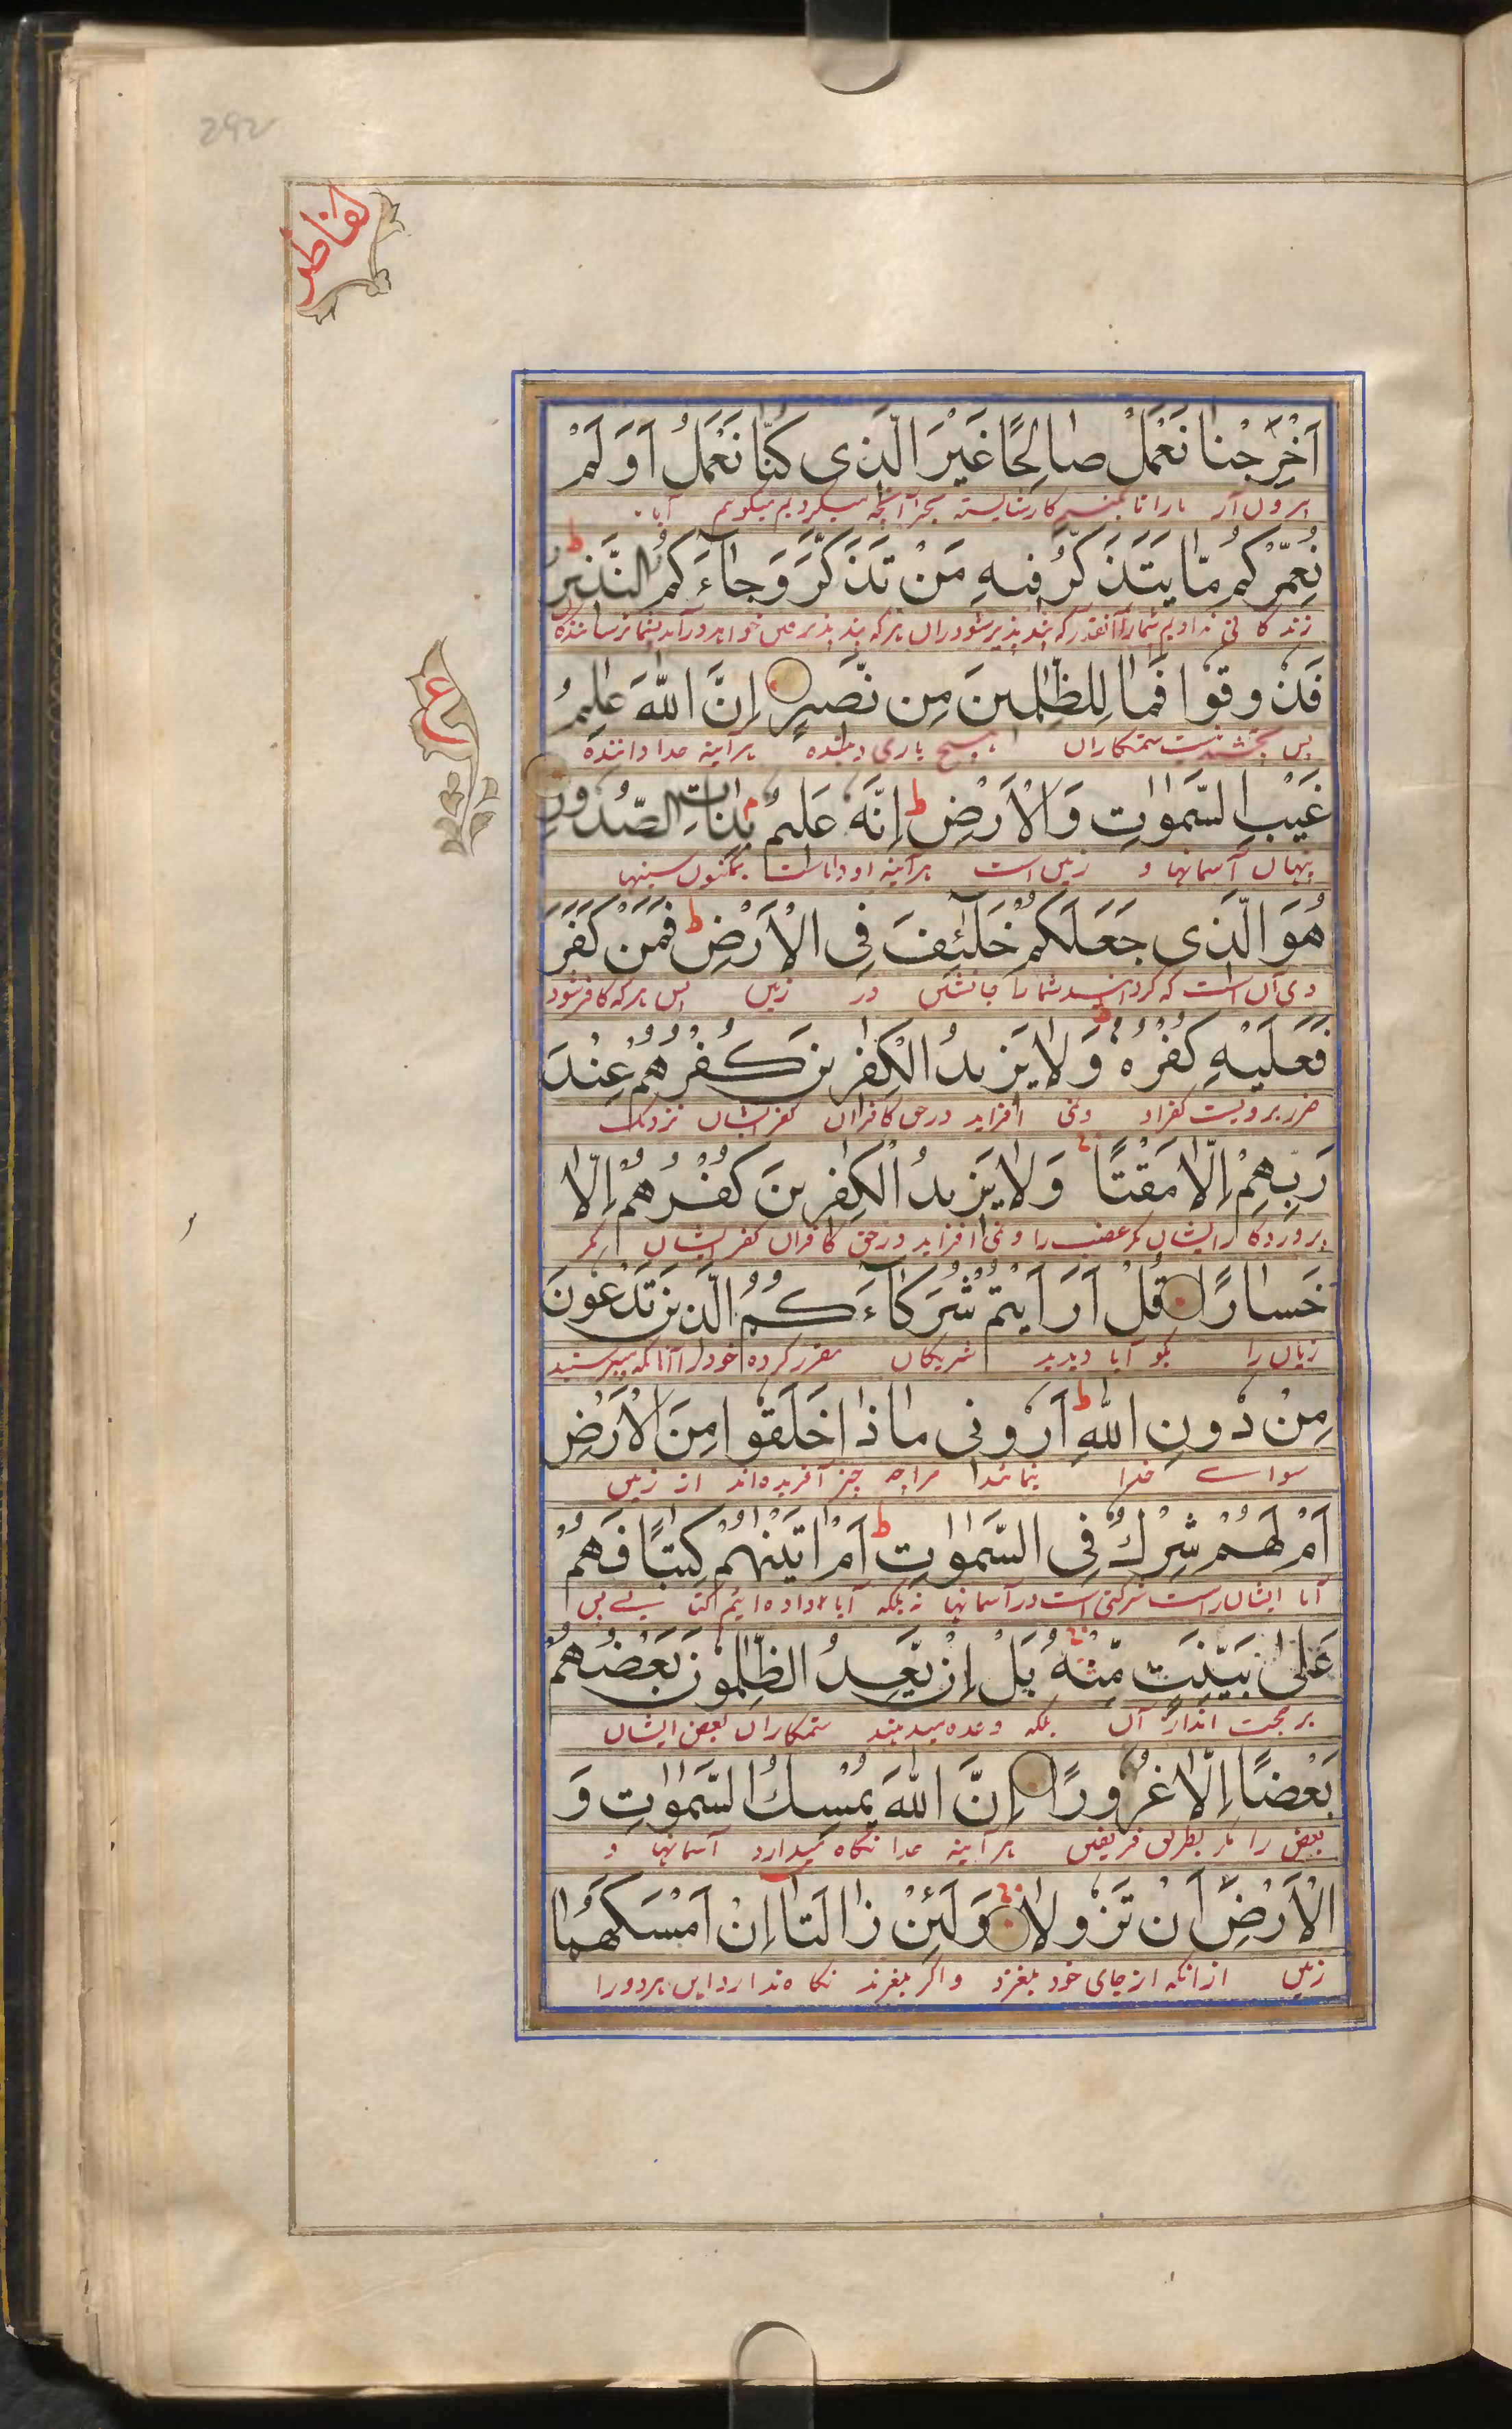 292
الفاطر
اَخْرِجْنا نَعْمَلْ صالِحًا غَيْرَ الَّذى كُنّا نَعْمَلُ اَوَ لَمْ
بیرون آر مارا تا کنیم کار شایسته بجز آنچه میکردیم میگویم آیا
نُعَمِّرْكُمْ مّا يَتَذَكَّرُ فيهِ مَنْ تَذَكَّرَ وَجاۤءَكُمُ النَّذيرُ ط
زندگانی ندادیم شمارا آنقدر که پند پذیر شود دران هرکه پند پذیر فتن خواهد و آمد بشما ترساننده
فَذُوقُوا فَما لِلظّٰلِمينَ مِن نَّصيرٍ اِنَّ اللّٰهَ عٰلِمُ
پس بچشید نیست ستمکاران هیچ یاری دهنده هرآینه خدا داننده
ع
غَيْبِ السَّمٰوٰتِ وَالْاَرْضِ ط اِنَّهُ عَليمٌ بِذاتِ الصُّدُورِ
پنهان آسمانها و زمین است هرآینه او داناست بمکنون سینها
هُوَ الَّذى جَعَلَكُمْ خَلٰٓئِفَ فِى الْاَرْضِ ط فَمَنْ كَفَرَ
وی آن است که گردانید شمارا جانشین در زمین پس هرکه کافر شود
فَعَلَيْهِ كُفْرُهُ ط وَلا يَزيدُ الْكٰفِرينَ كُفْرُهُمْ عِنْدَ
ضرر برویست کفر او ونمی افزاید در حق کافران کفر ایشان نزدیک
رَبِّهِمْ اِلّا مَقْتًا وَلا يَزيدُ الْكٰفِرينَ كُفْرُهُمْ اِلّا
پروردگار ایشان مگر غضب را و نمی افزاید در حق کافران کفر ایشان مگر
خَسارًا قُلْ اَرَاَيْتُمْ شُرَكاۤءَكُمُ الَّذينَ تَدْعُونَ
زیان را بگو آیا دیدید شریکان مقرر کرده خود را آنانکه میپرستید
مِنْ دُونِ اللّٰهِ ط اَرُونى ماذا خَلَقُوا مِنَ الْاَرْضِ
سوای خدا بنمائید مرا چه چیز آفریده‌اند از زمین
اَمْ لَهُمْ شِرْكٌ فِى السَّمٰوٰتِ ط اَمْ اٰتَيْنٰهُمْ كِتٰبًا فَهُمْ
آیا ایشان راست شرکتی است در آسمانها نه بلکه آیا داده ایم کتا بے پس
عَلىٰ بَيِّنَتٍ مِّنْهُ بَلْ اِنْ يَّعِدُ الظّٰلِمُونَ بَعْضُهُمْ
بر حجت اند از آن بلکه وعده میدهند ستمکاران بعض ایشان
بَعْضًا اِلّا غُرُورًا اِنَّ اللّٰهَ يُمْسِكُ السَّمٰوٰتِ وَ
بعض را مگر بطریق فریفتن هرآینه خدا نگاه میدارد آسمانها و
الْاَرْضَ اَنْ تَزُولا وَلَئِنْ زالَتاۤ اِنْ اَمْسَكَهُما
زمین ازانکه از جای خود بلغزد و اگر بلغزند نگاه ندارد این هردو را